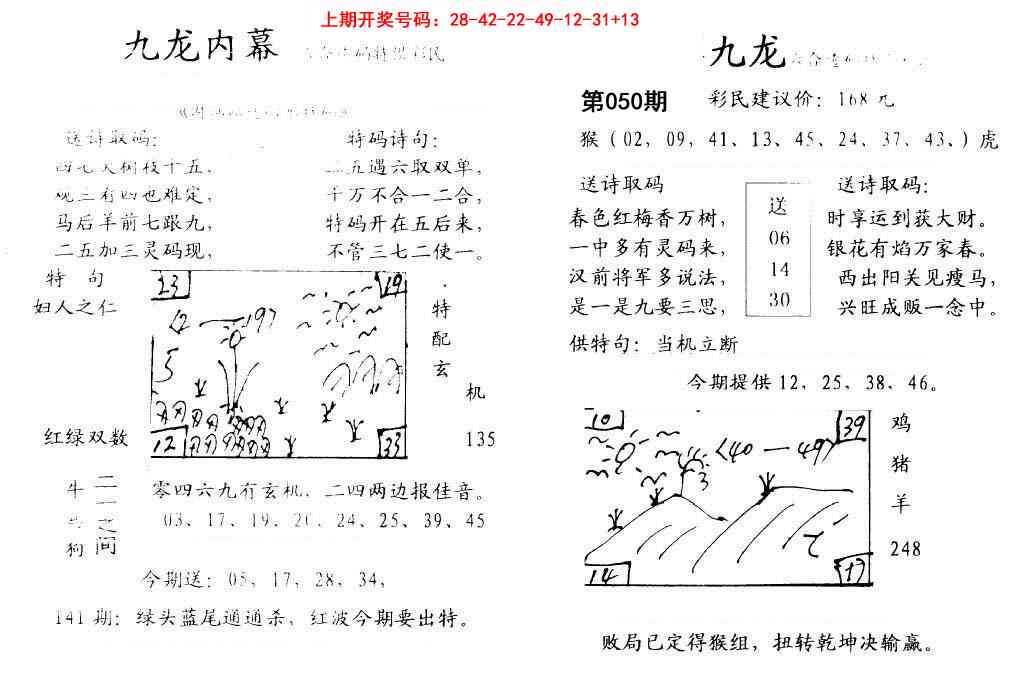 上期开奖号码：28-42-22-49-12-31+13
九龙内幕
送诗取码：
马后羊前七跟九，
二五加三灵码现，
特码诗句：
五遇六取双单，
千万不合一二合，
特码开在五后来，
不管三七二使一。
特句
妇人之仁
红绿双数
23
19
12
33
特配玄机
135
牛
狗
二一之间
零四六九有玄机，二四两边报佳音。
03、17、19、24、25、39、45
今期送：05、17、28、34，
141期：绿头蓝尾通通杀，红波今期要出特。
九龙
第050期
彩民建议价：168元
猴（02，09，41、13、45、24、37、43、）虎
送诗取码
春色红梅香万树，
一中多有灵码来，
汉前将军多说法，
是一是九要三思，
送
06
14
30
送诗取码：
时享运到获大财。
银花有焰万家春。
西出阳关见瘦马，
兴旺成贩一念中。
供特句：当机立断
今期提供12，25、38、46。
10
39
〈40—49〉
14
17
鸡
猪
羊
248
败局已定得猴组，扭转乾坤决输赢。